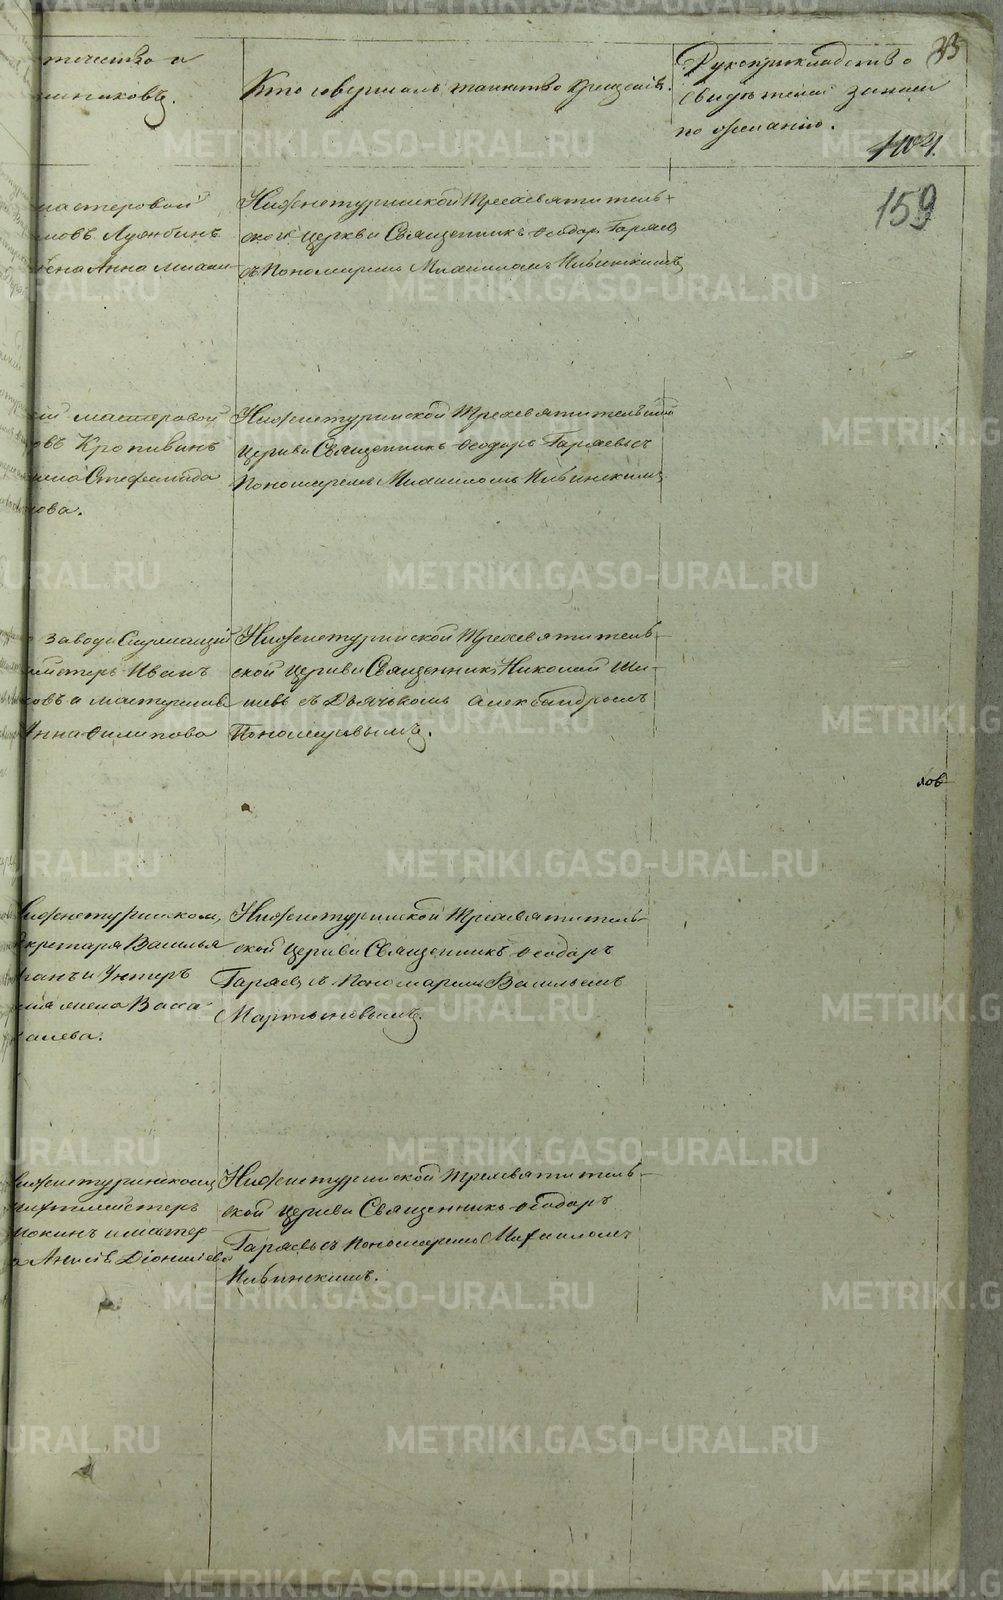 35
течество и
мниковъ.
Кто совершалъ таинство крещенiя.
Рукоприкладство
свидѣтелей записи
по желанiю.
159
мастеровой
Анна
Нижнетуринской Трехсвятитель-
ской Церкви Священникъ Ѳеодоръ Гаряевъ
съ Пономаремъ Михаиломъ Ильинскимъ
мастеровой
овъ Кропивинъ
Стефанида
нова.
Нижнетуринской Трехсвятительской
Церкви Священникъ Ѳеодоръ Гаряевъ съ
Пономаремъ Михаиломъ Ильинскимъ
завода Служащiй
Иванъ
овъ и
Анна Филипова
Нижнетуринской Трехсвятитель-
ской Церкви Священникъ Николай Ши-
шевъ съ Дьячкомъ Александромъ
Пономаревымъ.
лов
Нижнетуринском
Секретаря Василья
Унтеръ
жена Васса
Нижнетуринской Трехсвятитель-
ской Церкви Священникъ Ѳеодоръ
Гаряевъ съ Пономаремъ Васильемъ
Мартыновымъ.
Нижнетуринском
Дiонисiева
Нижнетуринской Трехсвятитель-
ской Церкви Священникъ Ѳеодоръ
Гаряевъ съ Пономаремъ Михаиломъ
Ильинскимъ.
METRIKI.GASO-URAL.RU